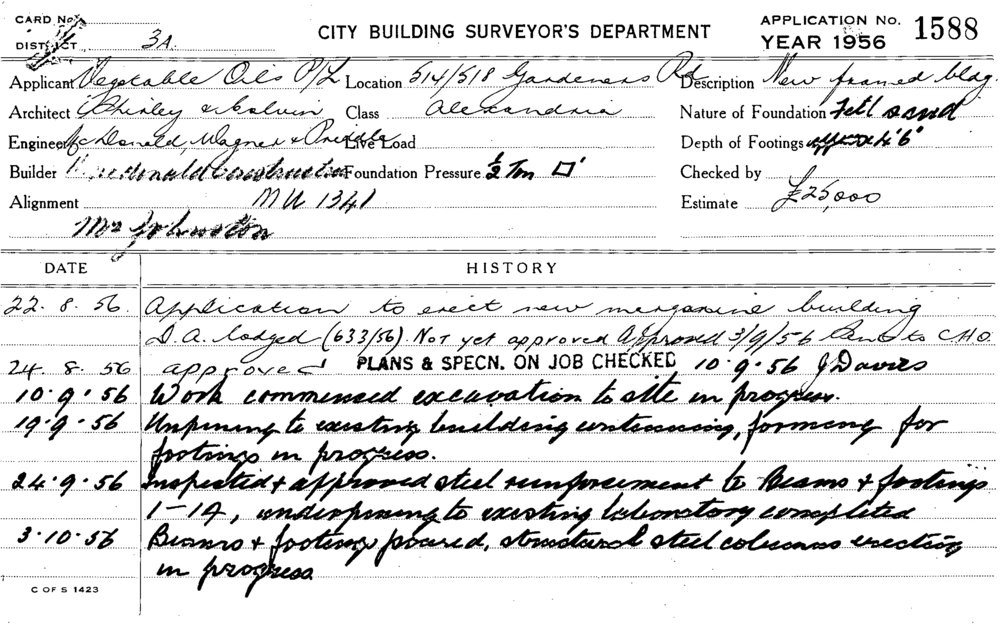 CARD No.
DISTRICT 3A.
CITY BUILDING SURVEYOR'S DEPARTMENT
APPLICATION No. 1588
YEAR 1956
Applicant Vegetable Oils P/L Location 514/518 Gardeners Rd Description New framed bldg.
Architect Shirley & Colvin Class Alexandria Nature of Foundation sand
Engineer McDonald, Wagner & Priddle Live Load Depth of Footings approx 4'6"
Builder Foundation Pressure ½ Ton □' Checked by
Alignment MU 1341 Estimate £25,000
Mr Johnston
DATE HISTORY
22.8.56 Application to erect new margarine building
D.A. lodged (633/56) Not yet approved Approved 3/9/56 to C.H.O.
24.8.56 approved PLANS & SPECN. ON JOB CHECKED 10.9.56 J Davies
10.9.56 Work commensed excavation to site in progress.
19.9.56 Unpining to existing building continuing, forming for
footings in progress.
24.9.56 Inspected & approved steel reinforcement to Beams & footings
1-14, underpining to existing laboratory completed
3.10.56 Beams & footings poured, structural steel columns erecting
in progress
C OF S 1423